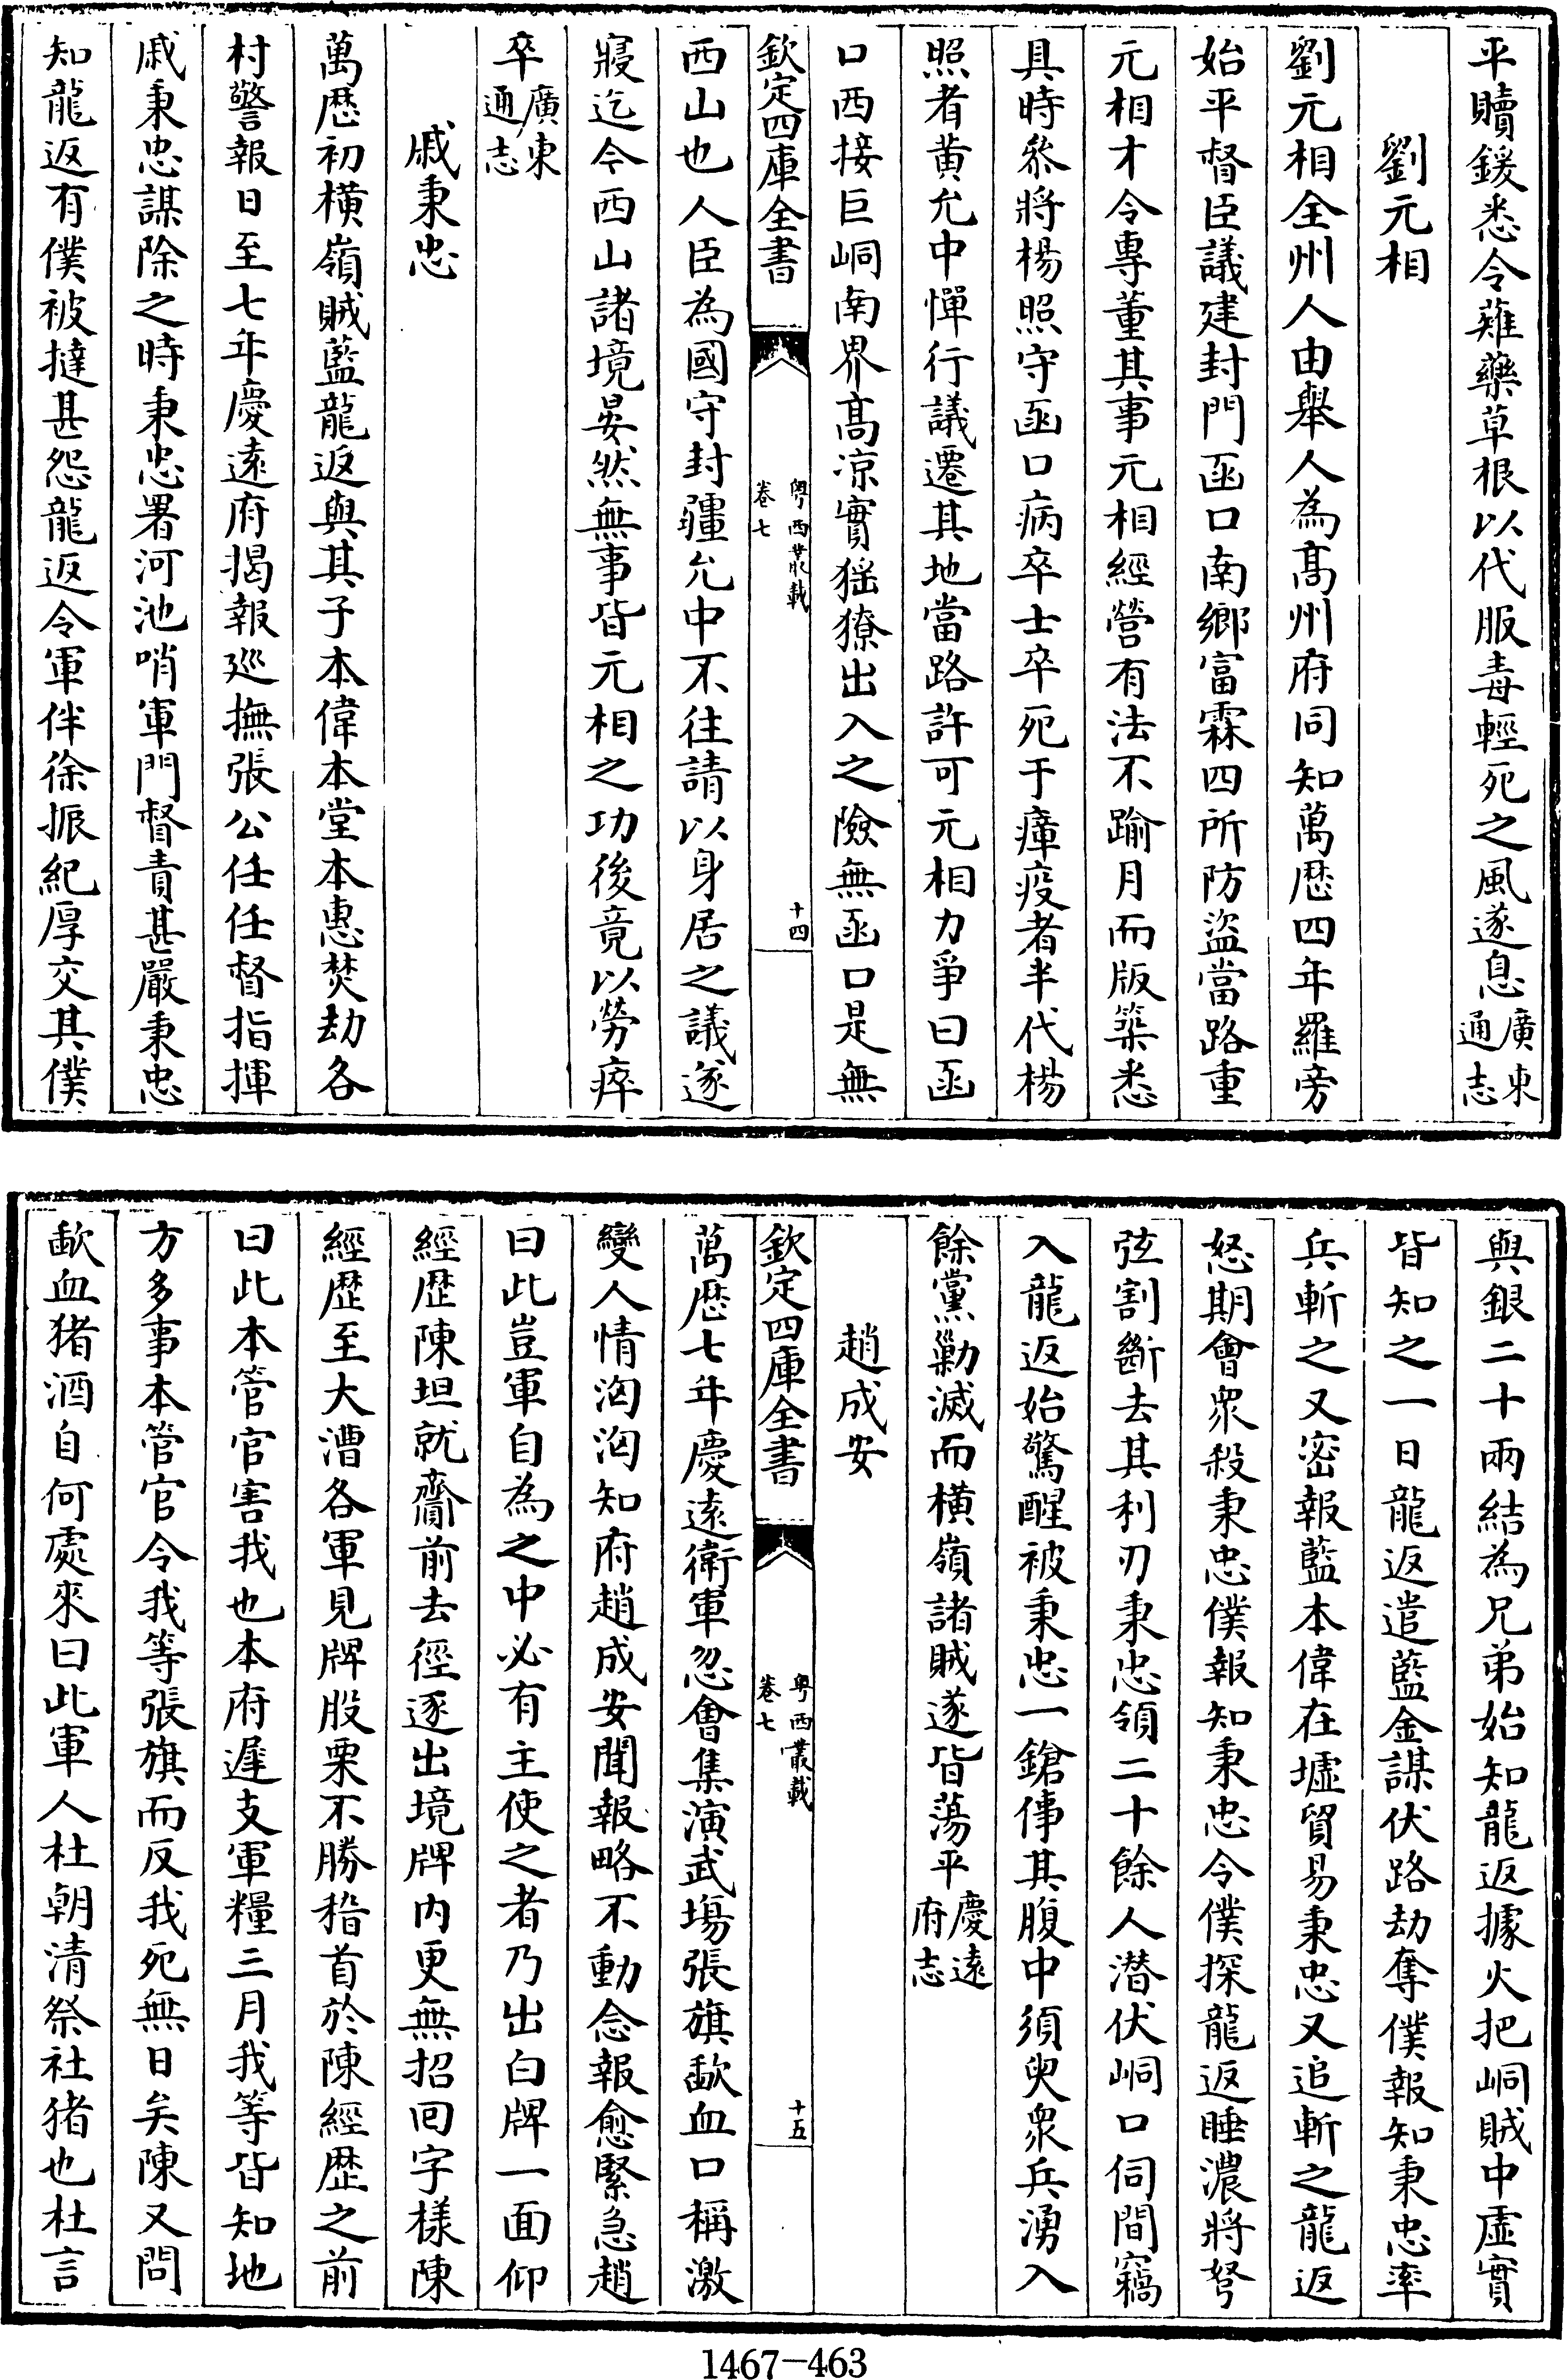 平贖鍰悉令薙藥草根以代服毒輕死之風遂息廣東通志
劉元相
劉元相全州人由舉人為髙州府同知萬厯四年羅旁
始平督臣議建封門函口南鄉富霖四所防盜當路重
元相才令專董其事元相經營有法不踰月而版築悉
具時叅將楊照守函口病卒士卒死于瘴疫者半代楊
照者黄允中憚行議遷其地當路許可元相力爭曰函
口西接巨峒南界髙凉實猺獠出入之險無函口是無
欽定四庫全書
粤西叢載
卷七
十四
西山也人臣為國守封疆允中不往請以身居之議遂
寢迄今西山諸境晏然無事皆元相之功後竟以勞瘁
卒廣東通志
戚秉忠
萬厯初横嶺賊藍龍返與其子本偉本堂本惠焚劫各
村警報日至七年慶逺府揭報廵撫張公任任督指揮
戚秉忠謀除之時秉忠署河池哨軍門督責甚嚴秉忠
知龍返有僕被撻甚怨龍返令軍伴徐振紀厚交其僕
與銀二十兩結為兄弟始知龍返據火把峒賊中虚實
皆知之一日龍返遣藍金謀伏路劫奪僕報知秉忠率
兵斬之又密報藍本偉在墟貿易秉忠又追斬之龍返
怒期會衆殺秉忠僕報知秉忠令僕探龍返睡濃將弩
弦割斷去其利刃秉忠領二十餘人潜伏峒口伺間竊
入龍返始驚醒被秉忠一鎗倳其腹中須臾衆兵湧入
餘黨勦滅而横嶺諸賊遂皆蕩平慶逺府志
趙成安
欽定四庫全書
粤西叢載
卷七
十五
萬厯七年慶逺衛軍忽會集演武塲張旗歃血口稱激
變人情洶洶知府趙成安聞報略不動念報愈緊急趙
曰此豈軍自為之中必有主使之者乃出白牌一面仰
經歴陳坦就齎前去徑逐出境牌内更無招回字様陳
經歴至大漕各軍見牌股栗不勝稽首於陳經歴之前
曰此本管官害我也本府遲支軍糧三月我等皆知地
方多事本管官令我等張旗而反我死無日矣陳又問
歃血猪酒自何處來曰此軍人杜朝清祭社猪也杜言
1467-463